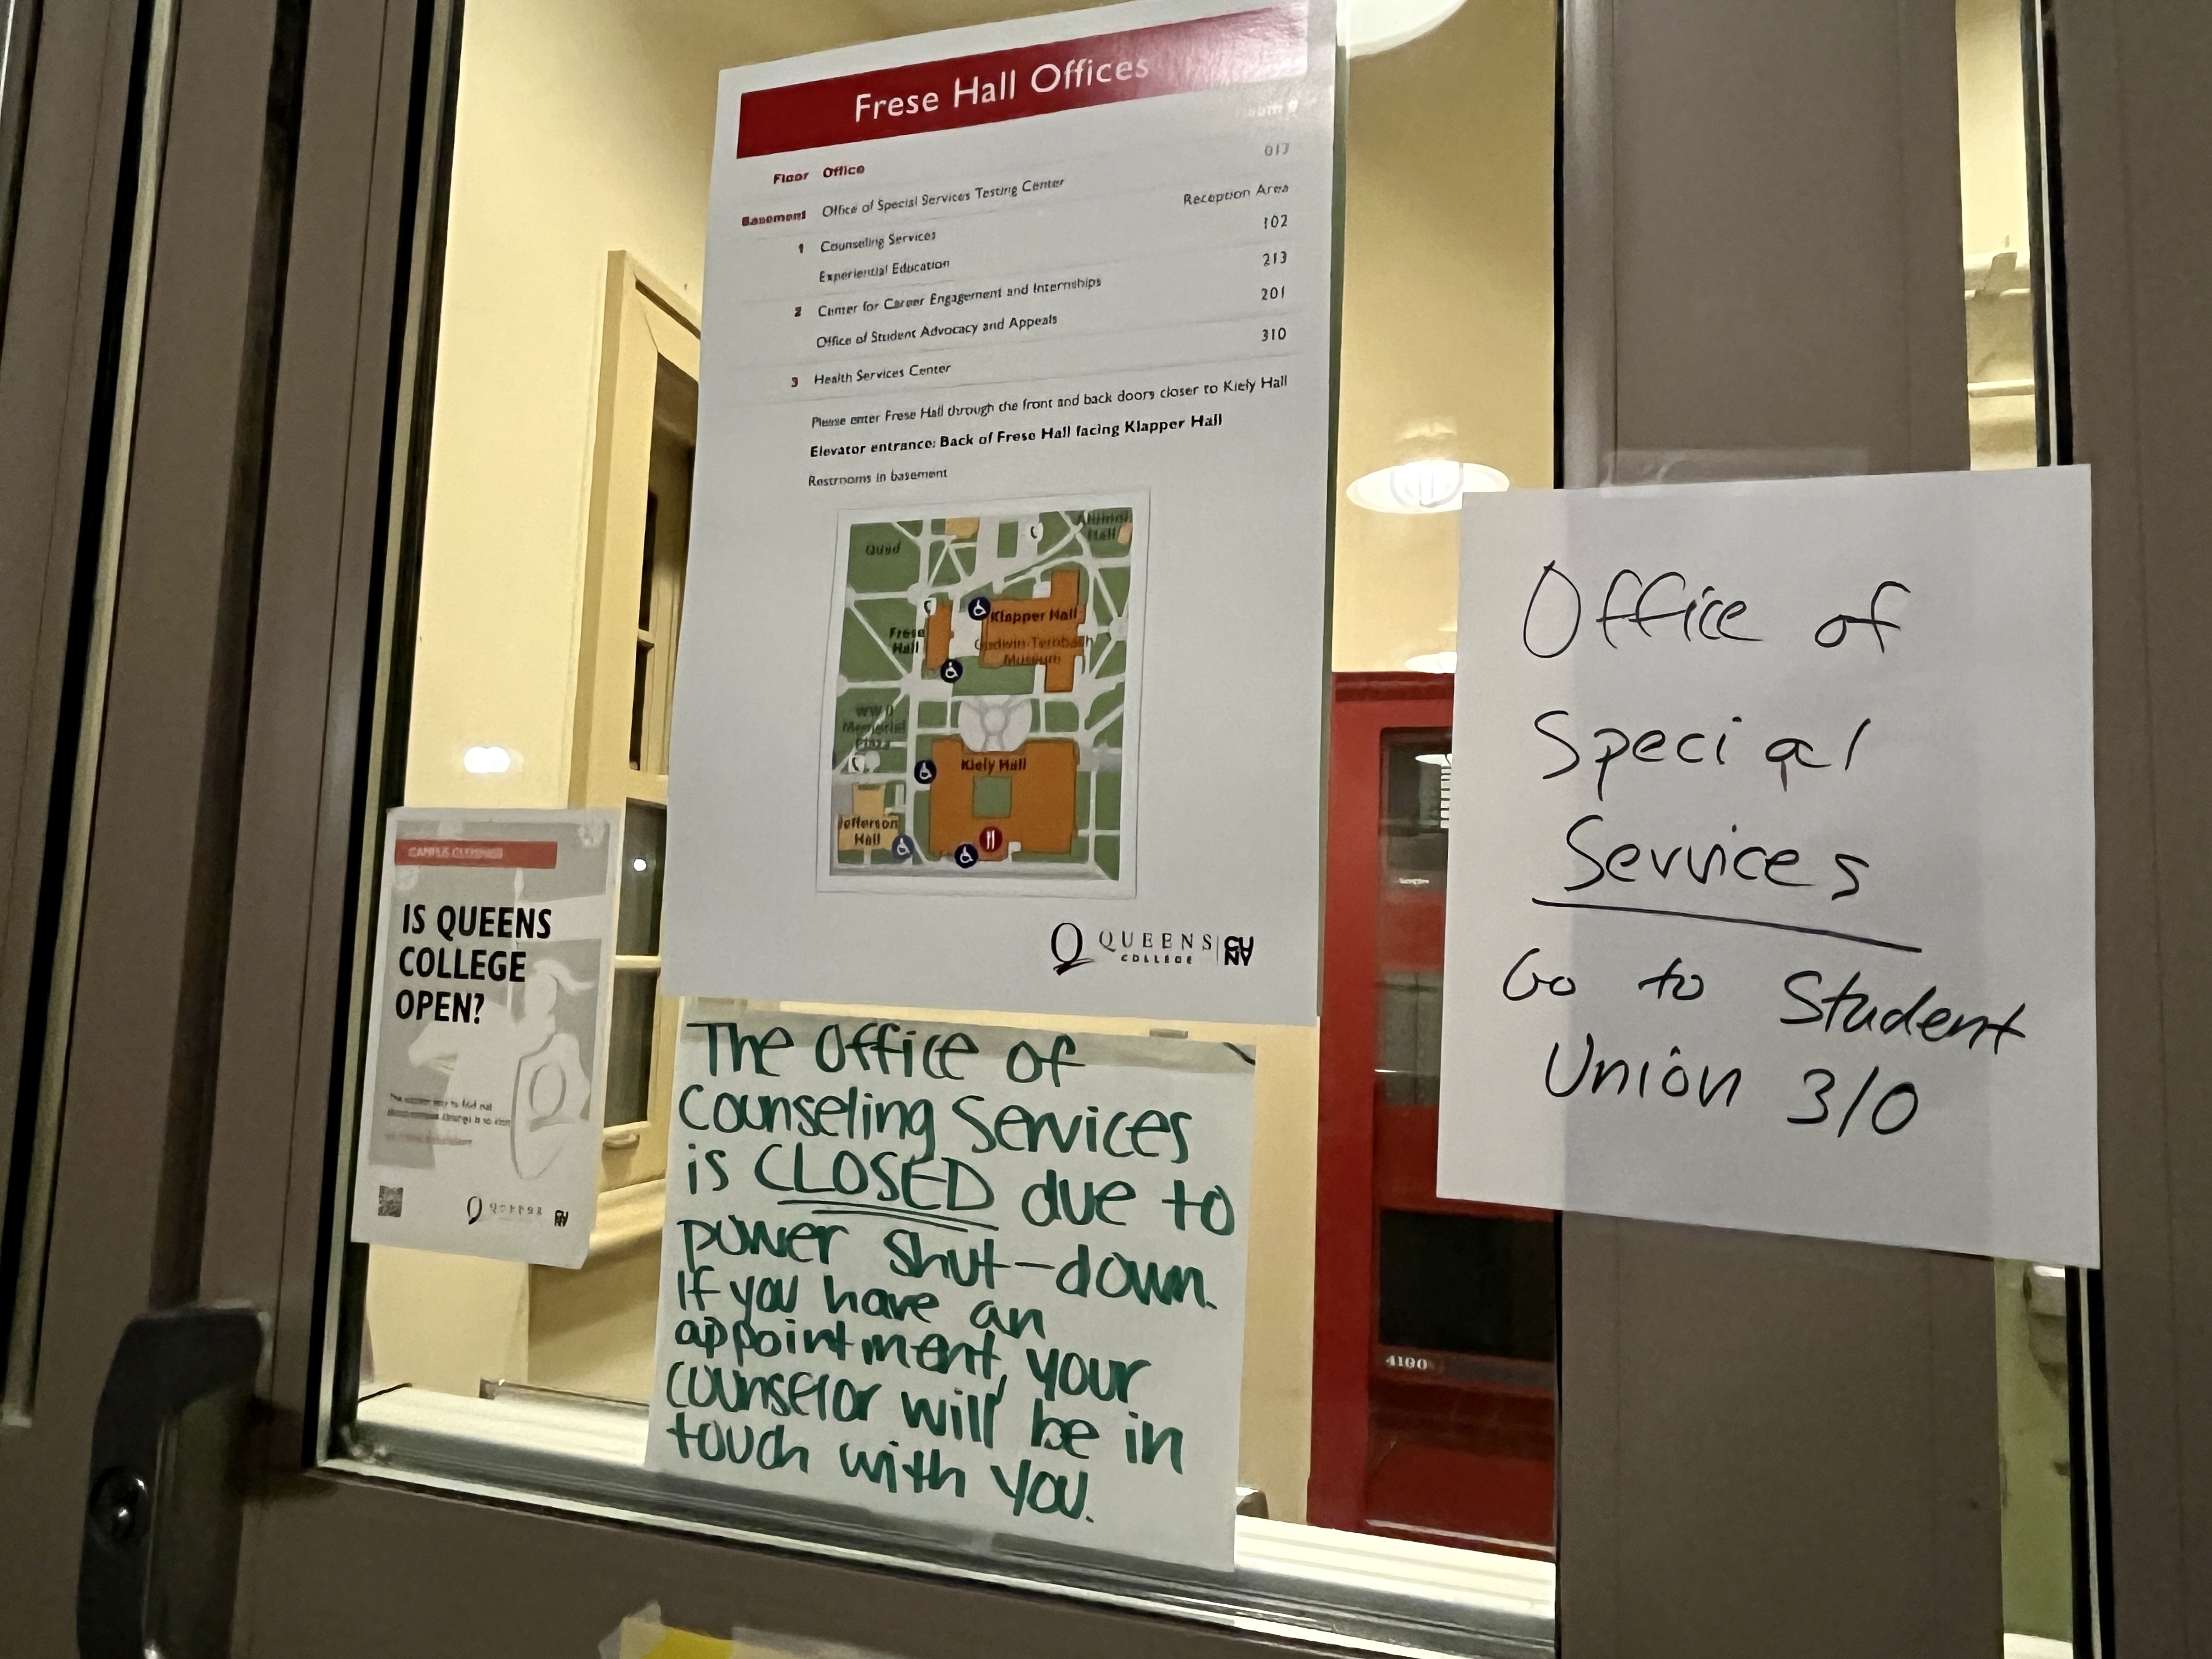 Frese Hall Offices
Floor Office
Basement Office of Special Services Testing Center 017
1 Counseling Services Reception Area
Experiential Education 102
2 Center for Career Engagement and Internships 213
Office of Student Advocacy and Appeals 201
3 Health Services Center 310
Please enter Frese Hall through the front and back doors closer to Kiely Hall
Elevator entrance: Back of Frese Hall facing Klapper Hall
Restrooms in basement
Quad
Alumni
Hall
Klapper Hall
Frese
Hall
Godwin-Ternbach
Museum
WW II
Memorial
Plaza
Kiely Hall
Jefferson
Hall
QUEENS
COLLEGE
CUNY
IS QUEENS
COLLEGE
OPEN?
QUEENS
The Office of
Counseling Services
is CLOSED due to
power shut-down.
If you have an
appointment, your
counselor will be in
touch with you.
Office of
Special
Services
Go to Student
Union 310
4190